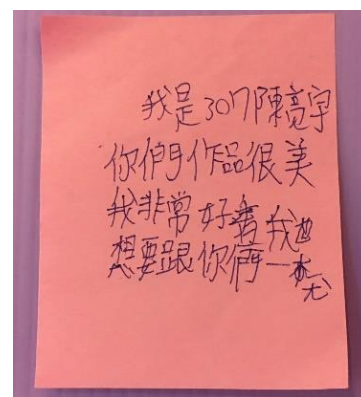 我是307陳亮宇
你們作品很美
我非常好喜我也
想要跟你們一